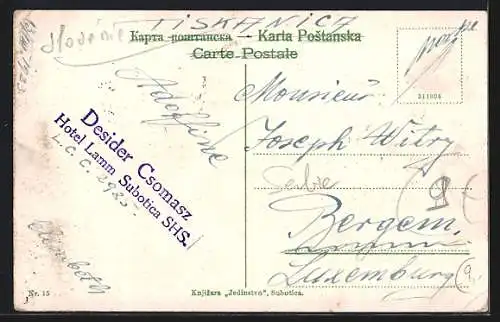 TISKANICA
Карта поштанска — Karta Poštanska
Carte Postale
311004
Adolfine
Monsieur
Joseph Witry
Desider Csomasz
Hotel Lamm Subotica SHS.
L.C.C. 2985.
Serbie
Bergem
Luxemburg
9
Nr. 15
Knjižara „Jedinstvo", Subotica.